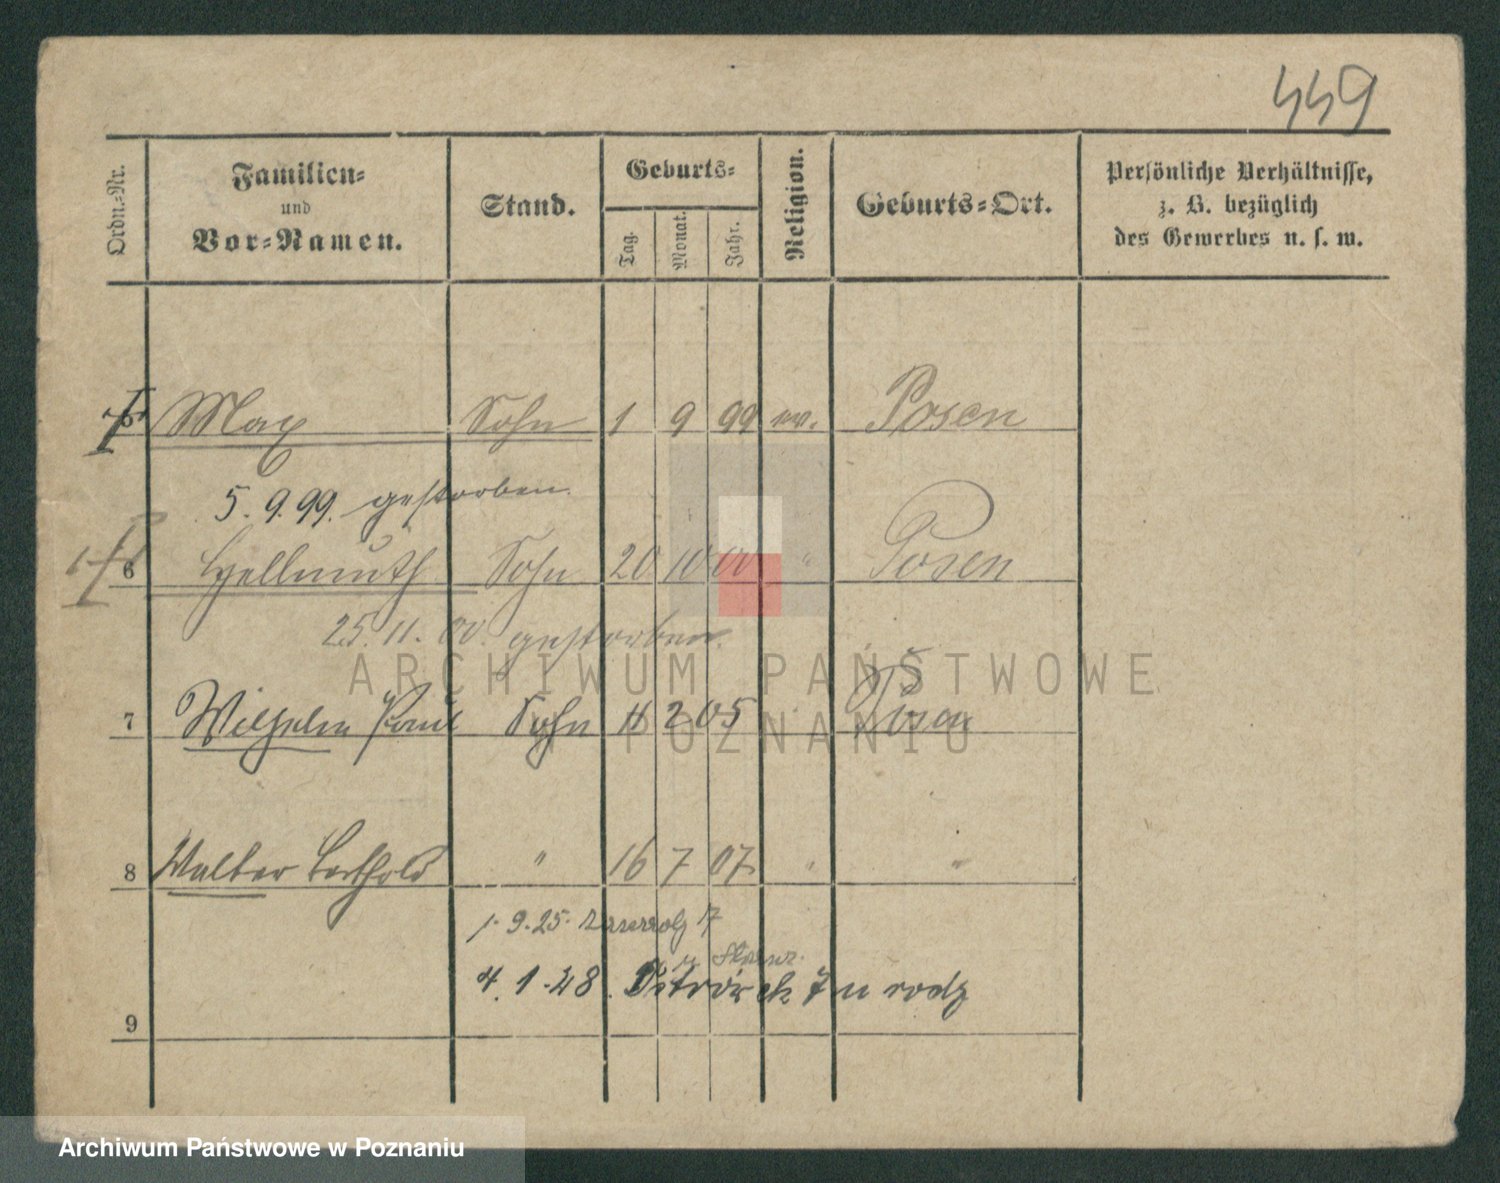 449
Ordn.-Nr. Familien- und Vor-Namen. Stand. Geburts- Tag. Monat. Jahr. Religion. Geburts-Ort. Persönliche Verhältnisse, z. B. bezüglich des Gewerbes u. s. w.
5 Max Sohn 1 9 99 ev. Posen
5. 9. 99. gestorben.
6 Hellmuth Sohn 20 10 00 " Posen
25. 11. 00. gestorben.
ARCHIWUM PAŃSTWOWE
7 Wilhelm Paul Sohn 2 05 Posen
W POZNANIU
8 Walter Berthold " 16 7 07 " "
1. 9. 25. 7
4. 1. 28. u rodz
9
Archiwum Państwowe w Poznaniu